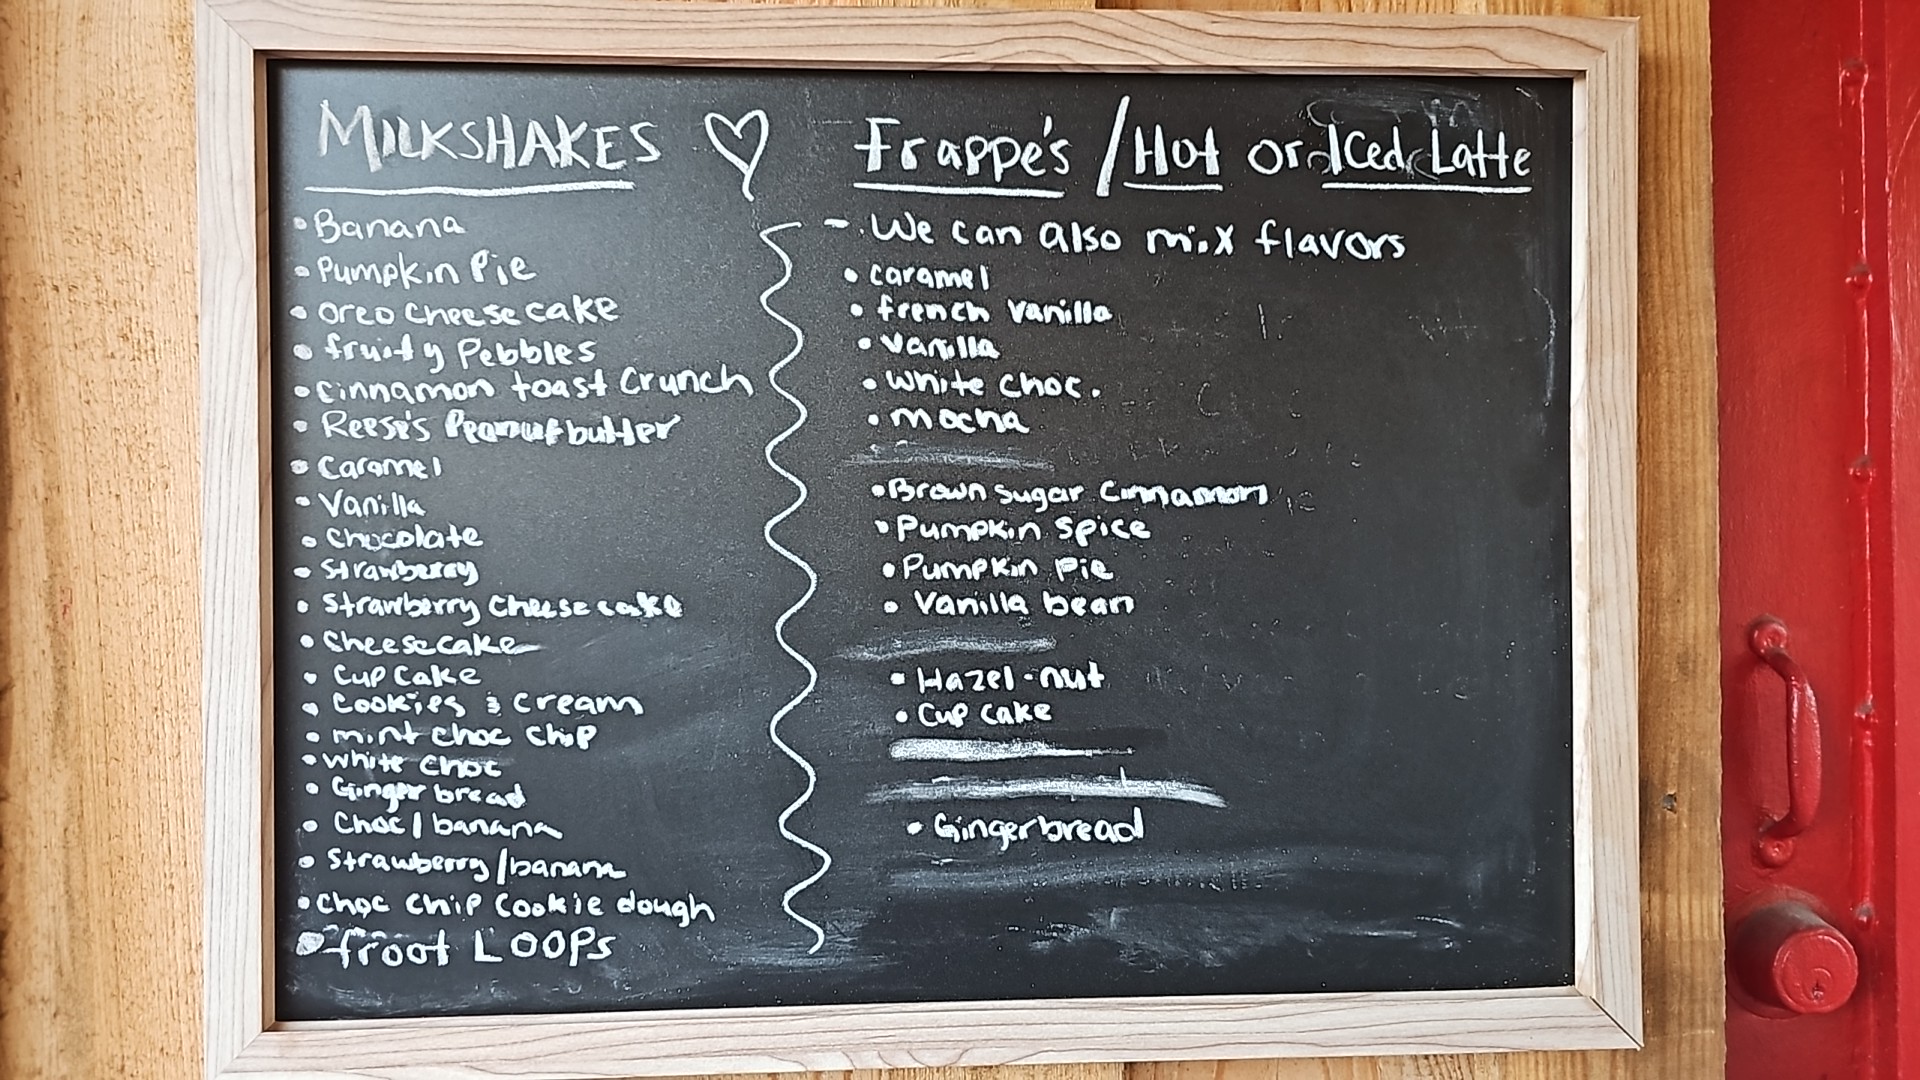 MILKSHAKES
• Banana
• Pumpkin Pie
• Oreo Cheese cake
• fruity Pebbles
• Cinnamon toast Crunch
• Reese's Peanut butter
• Caramel
• Vanilla
• Chocolate
• Strawberry
• Strawberry Cheese cake
• Cheesecake
• Cup Cake
• Cookies & Cream
• mint choc chip
• white choc
• Ginger bread
• Choc/banana
• Strawberry/banana
• choc chip cookie dough
• froot LOOPs
Frappe's / Hot or Iced Latte
- We can also mix flavors
• caramel
• french vanilla
• Vanilla
• white choc.
• mocha
• Brown sugar Cinnamon
• Pumpkin Spice
• Pumpkin pie
• Vanilla bean
• Hazel-nut
• Cup cake
• Gingerbread